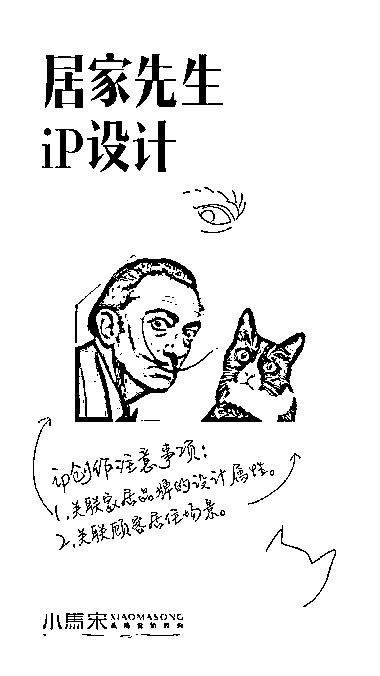 居家先生
iP设计
ip创作注意事项：
1.关联家居品牌的设计属性。
2.关联顾客居住场景。
小馬宋 XIAOMASONG